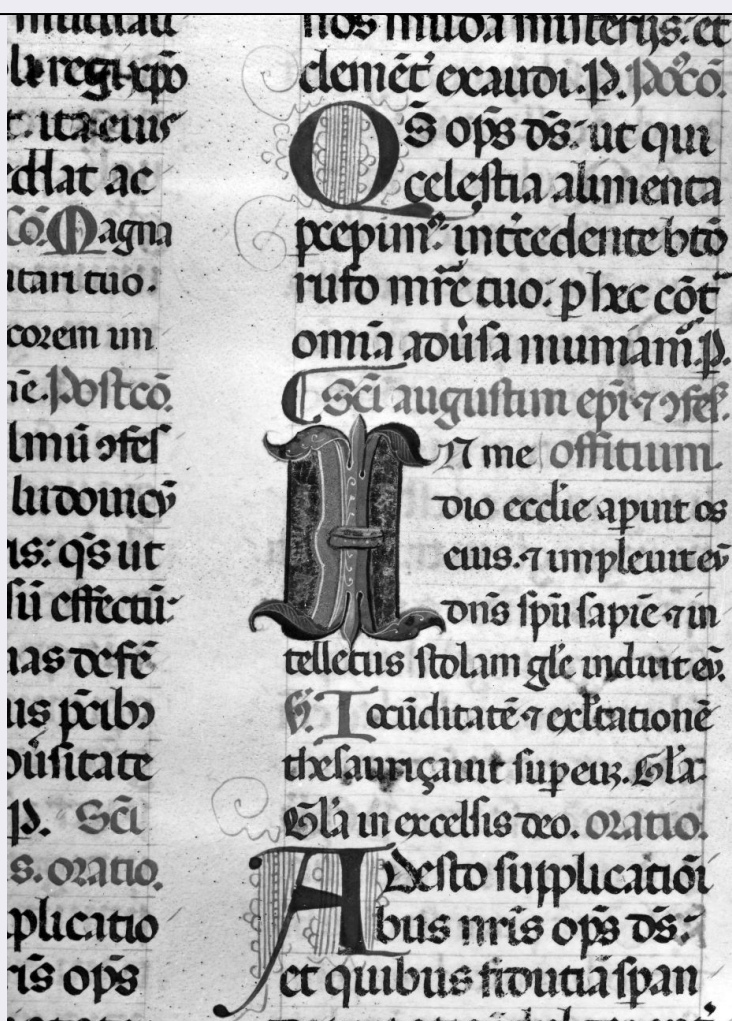 regi xp̄o
ita eius
ac
Cō. Magna
tuo.
corem im
Postcō.
ꝯfes
ludouic
is: q̄s ut
effectū:
as defē
p̄cib
ūsitate
P. Sc̄i
s. oratio.
plicatio
ris op̄s
nos muda misterijs: et
clemēt exaudi. P. Po᷒cō.
Qs op̄s ds: ut qui
celestia alimenta
pcepim᷒: int̄cedente btō
rufo mr̄e tuo: p hec cōt
omīa adūsa muniam᷒. P.
Sc̄i augustini ep̄i ⁊ ꝯfes.
IN me offitium.
dio ecclīe apuit os
eius. ⁊ impleuit eū
dn̄s sp̄u sapīe ⁊ in
tellectus stolam gl̄e induit eū.
V̄. Iocūditatē ⁊ exl̄tationē
thesauriçauit sup eū. Gl̄a
Gl̄a in excelsis deo. oratio.
Adesto supplicatiōi
bus nr̄is op̄s ds:
et quibus fidutiā span